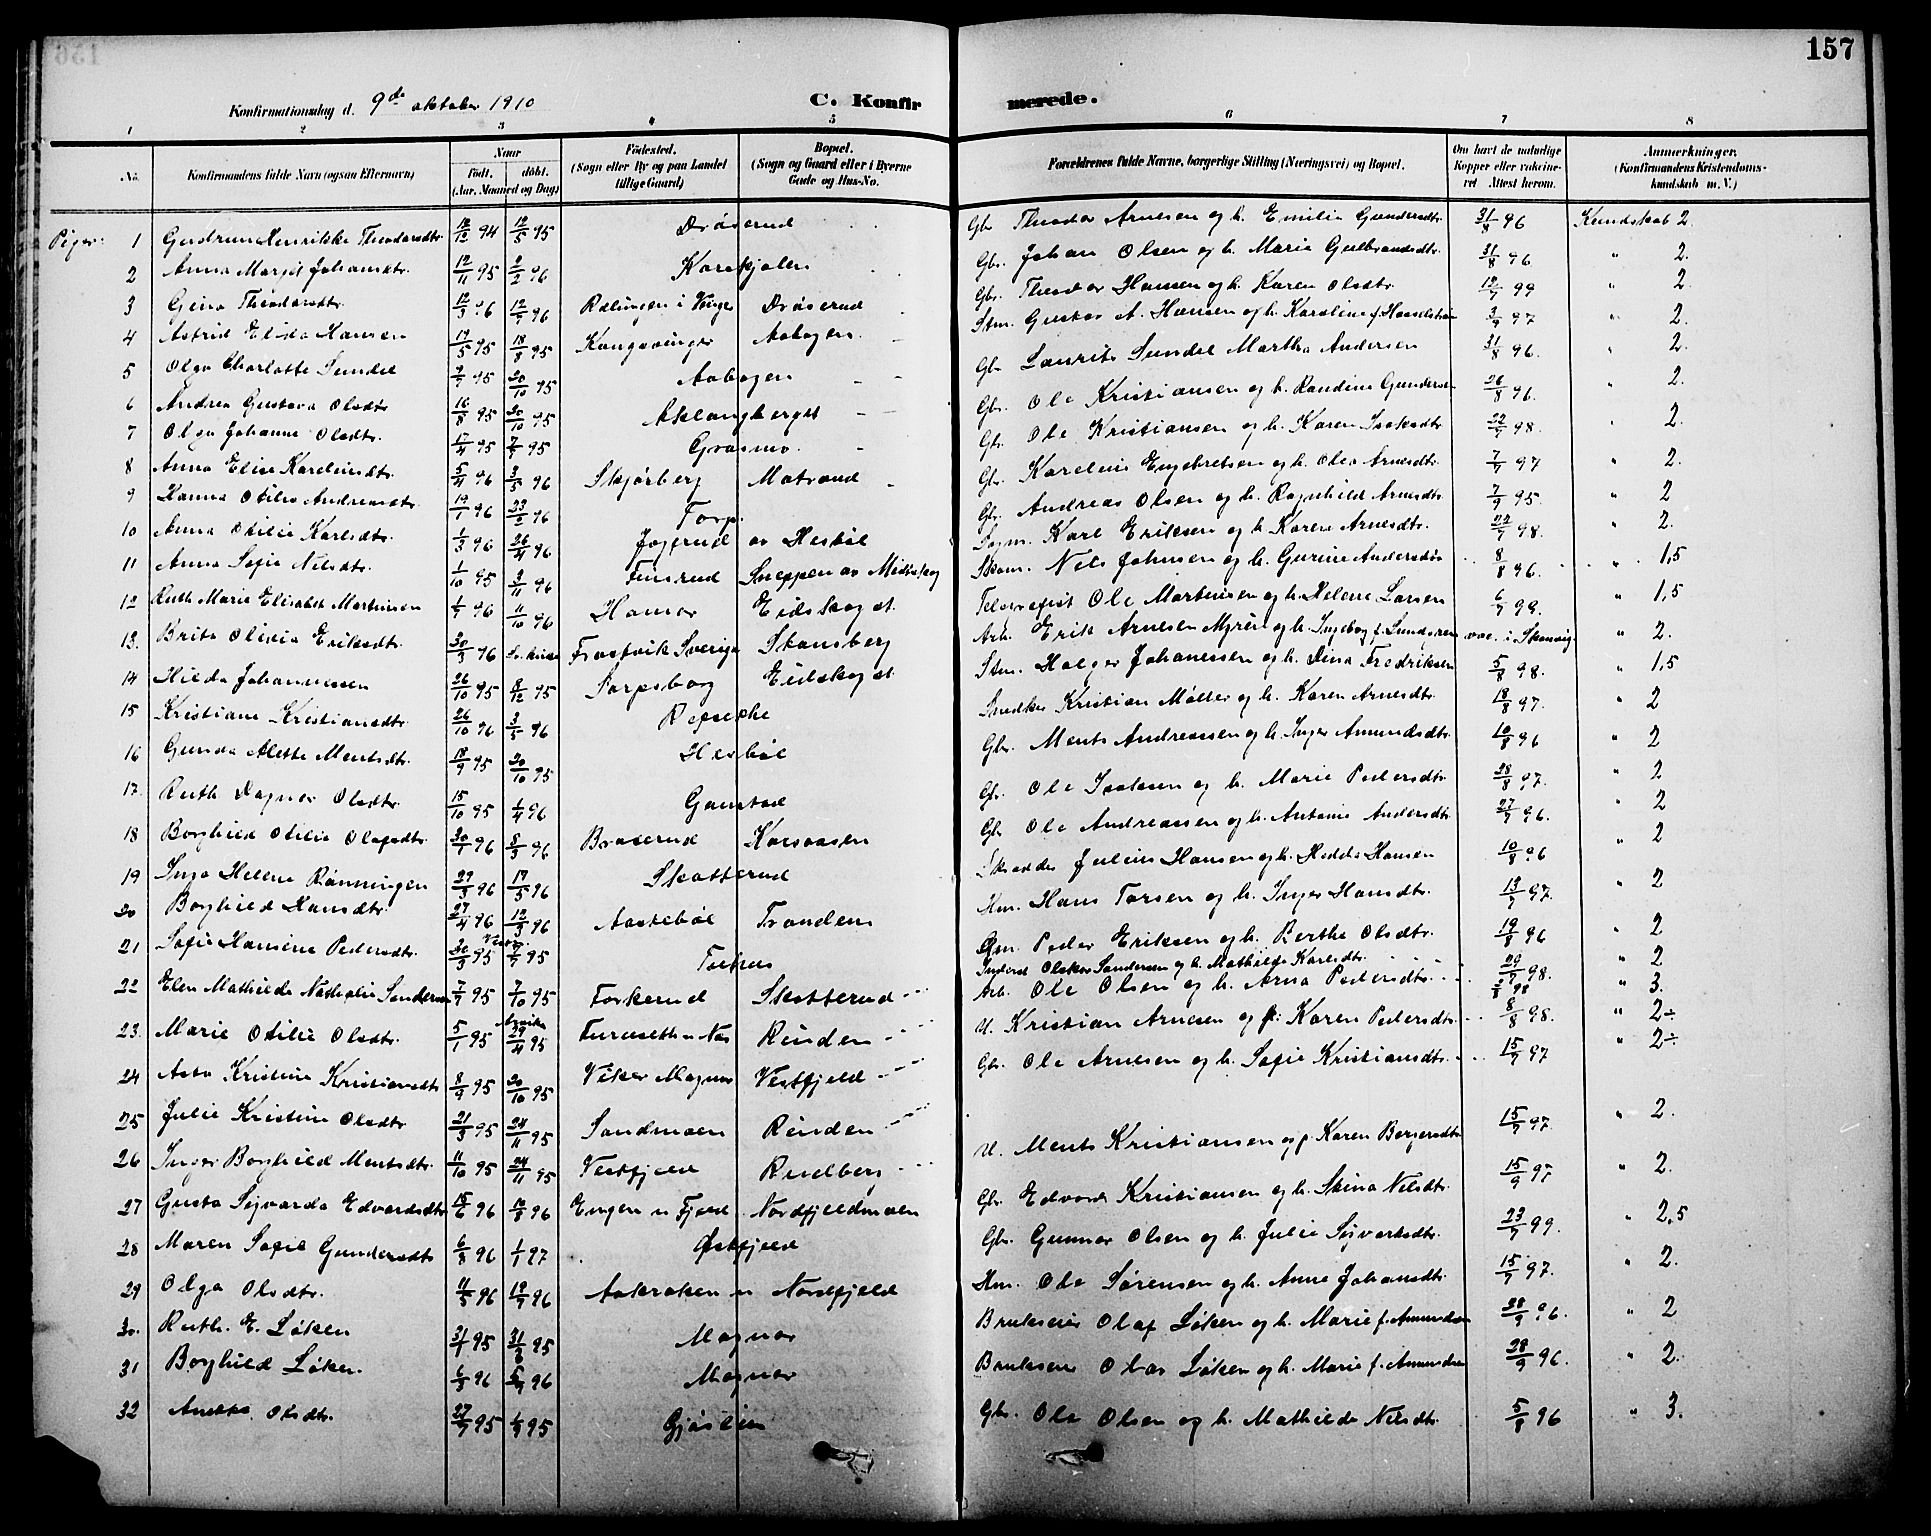 157
Konfirmationsdag d. 9de oktober 1910
C. Konfirmerede.
1 2 3 4 5 6 7 8
No. Konfirmandens fulde Navn (ogsaa Efternavn) Naar Født. døbt. (Aar, Maaned og Dag) Fødested. (Sogn eller By og paa Landet tillige Gaard) Bopæl. (Sogn og Gaard eller i Byerne Gade og Hus-No. Forældrenes fulde Navne, borgerlige Stilling (Næringsvei) og Bopæl. Om havt de naturlige Kopper eller vaccineret Attest herom. Anmærkninger. (Konfirmandens Kristendomskundskab m. V.)
Piger: 1 Gudrun Henrikke Theodorsdtr. 12/12 94 12/5 95 Drøserud Gbr. Theodor Arnesen og h. Emilie Gundersdtr. 31/8 96 Kundskab 2.
2 Anna Margit Johansdtr. 12/11 95 2/2 96 Gbr. Johan Olsen og h. Marie Gulbrandsdtr. 31/8 96 " 2.
3 Gina Theodorsdtr. 12/3 96 12/7 96 Rælingen i Vinger Drøserud Gbr. Theodor Hansen og h. Karen Olsdtr. 12/7 99 " 2.
4 Astrid Elida Hansen 19/5 95 18/8 95 Kongsvinger Aabogen Stm. Gustav A. Hansen og h. Karoline f. 3/9 97 " 2.
5 Olga Charlotte Sundel 9/9 95 20/10 95 Aabogen Gbr. Laurits Sundel Martha Andersen 31/8 96. " 2.
6 Andrea Gustava Olsdtr. 16/8 95 20/10 95 Gbr. Ole Kristiansen og h. Randine 26/8 96. " 2.
7 Olga Johanne Olsdtr. 17/4 95 7/7 95 Grasmo Gbr. Ole Kristiansen og h. Karen Isaksdtr. 22/7 98. " 2.
8 Anna Elise Kareliusdtr. 5/4 96 3/5 96 Skjørberg Matrand Gbr. Karelius Engebretsen og h. Olea Arnesdtr. 7/7 97 " 2.
9 Hanna Otilie Andreasdtr. 19/1 96 23/2 96 Torp. Gbr. Andreas Olsen og h. Ragnhild Arnesdtr. 7/9 95. " 2
10 Anna Otilie Karlsdtr. 1/3 96 26/4 96 Karl Eriksen og h. Karen Arnesdtr. 22/7 98. " 2.
11 Anna Sofie Nilsdtr. 1/10 95 Finsrud Sneppen Nils Johnsen og h. Gurine Andersdtr. 8/8 96. " 1,5
12 Ruth Marie Elisabet Martinsen 1/7 96 11/10 96 Hamar Eidskog st. Telegrafist Ole Martinsen og h. Helene Larsen 6/7 99. " 1,5
13. Brita Olivia Eriksdtr. 30/3 96 Frostvik Sverige Skansberg Arb. Erik Arnesen Myren og h. Ingeborg f. " 2.
14 Hilda Johannessen 26/10 95 8/12 95 Sarpsborg Eidskog st Stm. Holger Johanessen og h. Dina Fredriksen 5/8 98. " 1,5
15 Kristiane Kristiansdtr. 26/10 96 3/5 96 Snedker Kristian Møller og h. Karen Arnesdtr. 18/8 97. " 2
16 Gunda Alette Mentsdtr. 18/9 95 20/10 95 Hesbøl Gbr. Ments Andreassen og h. Inger Amundsdtr. 10/8 96 " 2
17. Ruth Dagmar Olsdtr. 15/10 95 1/4 96 Gaustad Gbr. Ole Isaksen og h. Marie Pedersdtr. 28/8 97. " 2
18 Borghild Otilie Olafsdtr. 30/1 96 8/3 96 Gbr. Ole Andreassen og h. Antonie Andersdtr. 27/7 96. " 2
19 Inga Helene Rønningen 29/3 96 17/5 96 Skotterud Julius Hansen og h. Hedda Hansen 10/8 96 " 2
20 Borghild Hansdtr. 27/4 96 12/3 96 Hm. Hans Torsen og h. Inger Hansdtr. 13/7 97. " 2
21 Sofie Hansine Pedersdtr. 20/3 95 7/7 95 Peder Eriksen og h. Berthe Olsdtr. 19/8 96 " 2
22 Elen Mathilde Nathalie Sandersen 7/9 95 7/10 95 Forkerud Skotterud Olskar Sandersen og h. Mathilde Karlsdtr. 29/7 98. " 2
23. Marie Otilie Olsdtr. 5/1 95 29/4 95 Reiden Arb. Ole Olsen og h. Arna Pedersdtr. 2/8 98 " 3.
24 Asta Kristine Kristiansdtr 8/9 95 20/10 95 Viker Magnor Vestfjeld U. Kristian Arnesen og p. Karen Pedersdtr. 8/8 98. " 2÷
25 Julie Kristine Olsdtr 21/3 95 24/11 95 Sandmoen Reiden Gbr. Ole Arnesen og h. Sofie Kristiansdtr. 15/7 97 " 2÷
26 Inger Borghild Mentsdtr. 11/10 95 24/11 95 Vestfjeld Rudberg U. Ments Kristiansen og p. Karen Bergersdtr. 15/7 97. " 2.
27 Gusta Sigvarda Edvardsdtr. 15/6 96 12/8 96 Engen u Fjeld Nordfjeldmoen Gbr. Edvard Kristiansen og h. Stina Nilsdtr. 15/9 97 " 2.
28 Maren Sofie Gundersdtr 6/8 96 1/1 97 Østfjeld Gbr. Gunnar Olsen og h. Julie Sigvartsdtr. 23/7 99. " 2,5
29 Olga Olsdtr. 4/5 96 12/7 96 Aakroken u Nordfjeld Hm. Ole Sørensen og h. Anne Johansdtr. 15/7 97. " 2.
30. Ruth. E. Løken 31/1 95 31/3 95 Magnor Brukseier Olaf Løken og h. Marie f. Amundsen 28/9 96. " 2
31 Borghild Løken. 6/3 96 Magnor Brukseier Løken og h. Marie f. Amundsen 28/9 96. " 2.
32 Olsdtr. 27/7 95 1/9 95 Gjøslien Gbr. Ole Olsen og h. Mathilde Nilsdtr. 5/8 96 " 3.